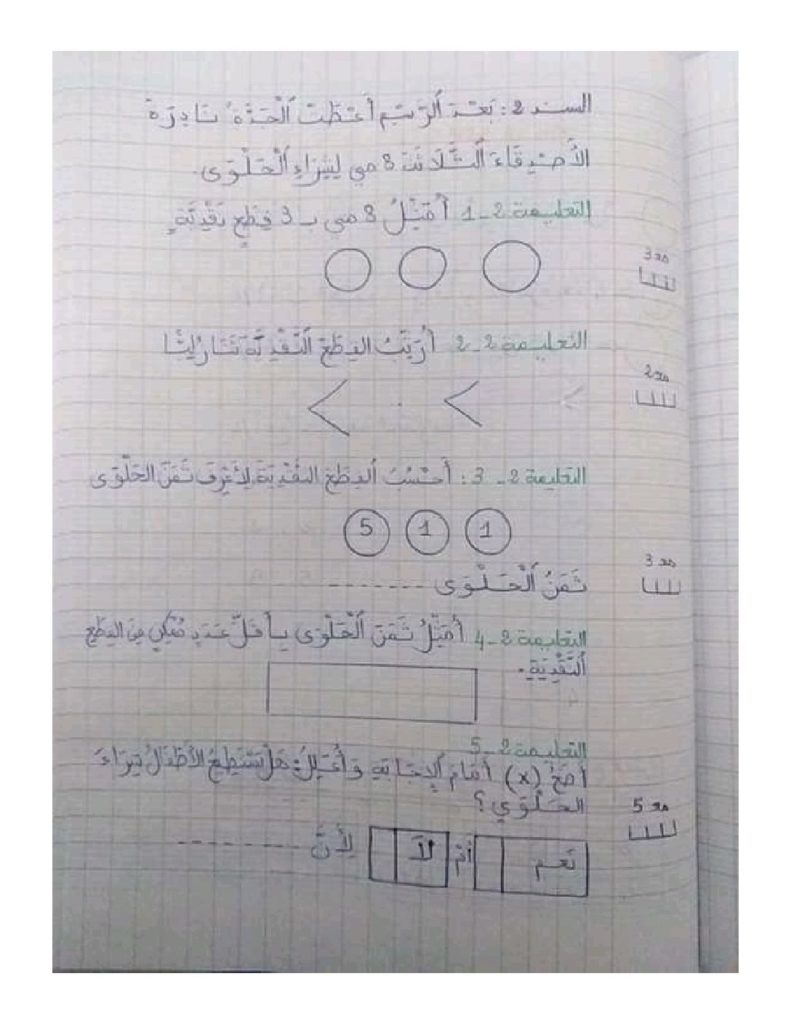 السند 2 : بَعْدَ الرَّسْمِ أَعْطَتْ الْجَدَّةُ نَادِرَةُ
الأَصْدِقَاءَ الثَّلَاثَةَ 8 مي لِشِرَاءِ الْحَلْوَى.
التعليمة 2-1 أُمَثِّلُ 8 مي بـ 3 قِطَعٍ نَقْدِيَّةٍ
مع 3
التعليمة 2-2 أُرَتِّبُ القِطَعَ النَّقْدِيَّةَ تَنَازُلِيًّا
مع 2
< <
التعليمة 2-3 : أَحْسُبُ القِطَعَ النَّقْدِيَّةَ لِأَعْرِفَ ثَمَنَ الحَلْوَى
5 1 1
مع 3
ثَمَنُ الْحَلْوَى --------
التعليمة 2-4 أُمَثِّلُ ثَمَنَ الْحَلْوَى بِأَقَلِّ عَدَدٍ مُمْكِنٍ مِنَ القِطَعِ
النَّقْدِيَّةِ.
التعليمة 2-5
أَضَعُ (x) أَمَامَ الإِجَابَةِ وَأُعَلِّلُ: هَلْ يَسْتَطِيعُ الأَطْفَالُ شِرَاءَ
الحَلْوَى ؟
مع 5
نَعم أَمْ لَا لِأَنَّ ---------